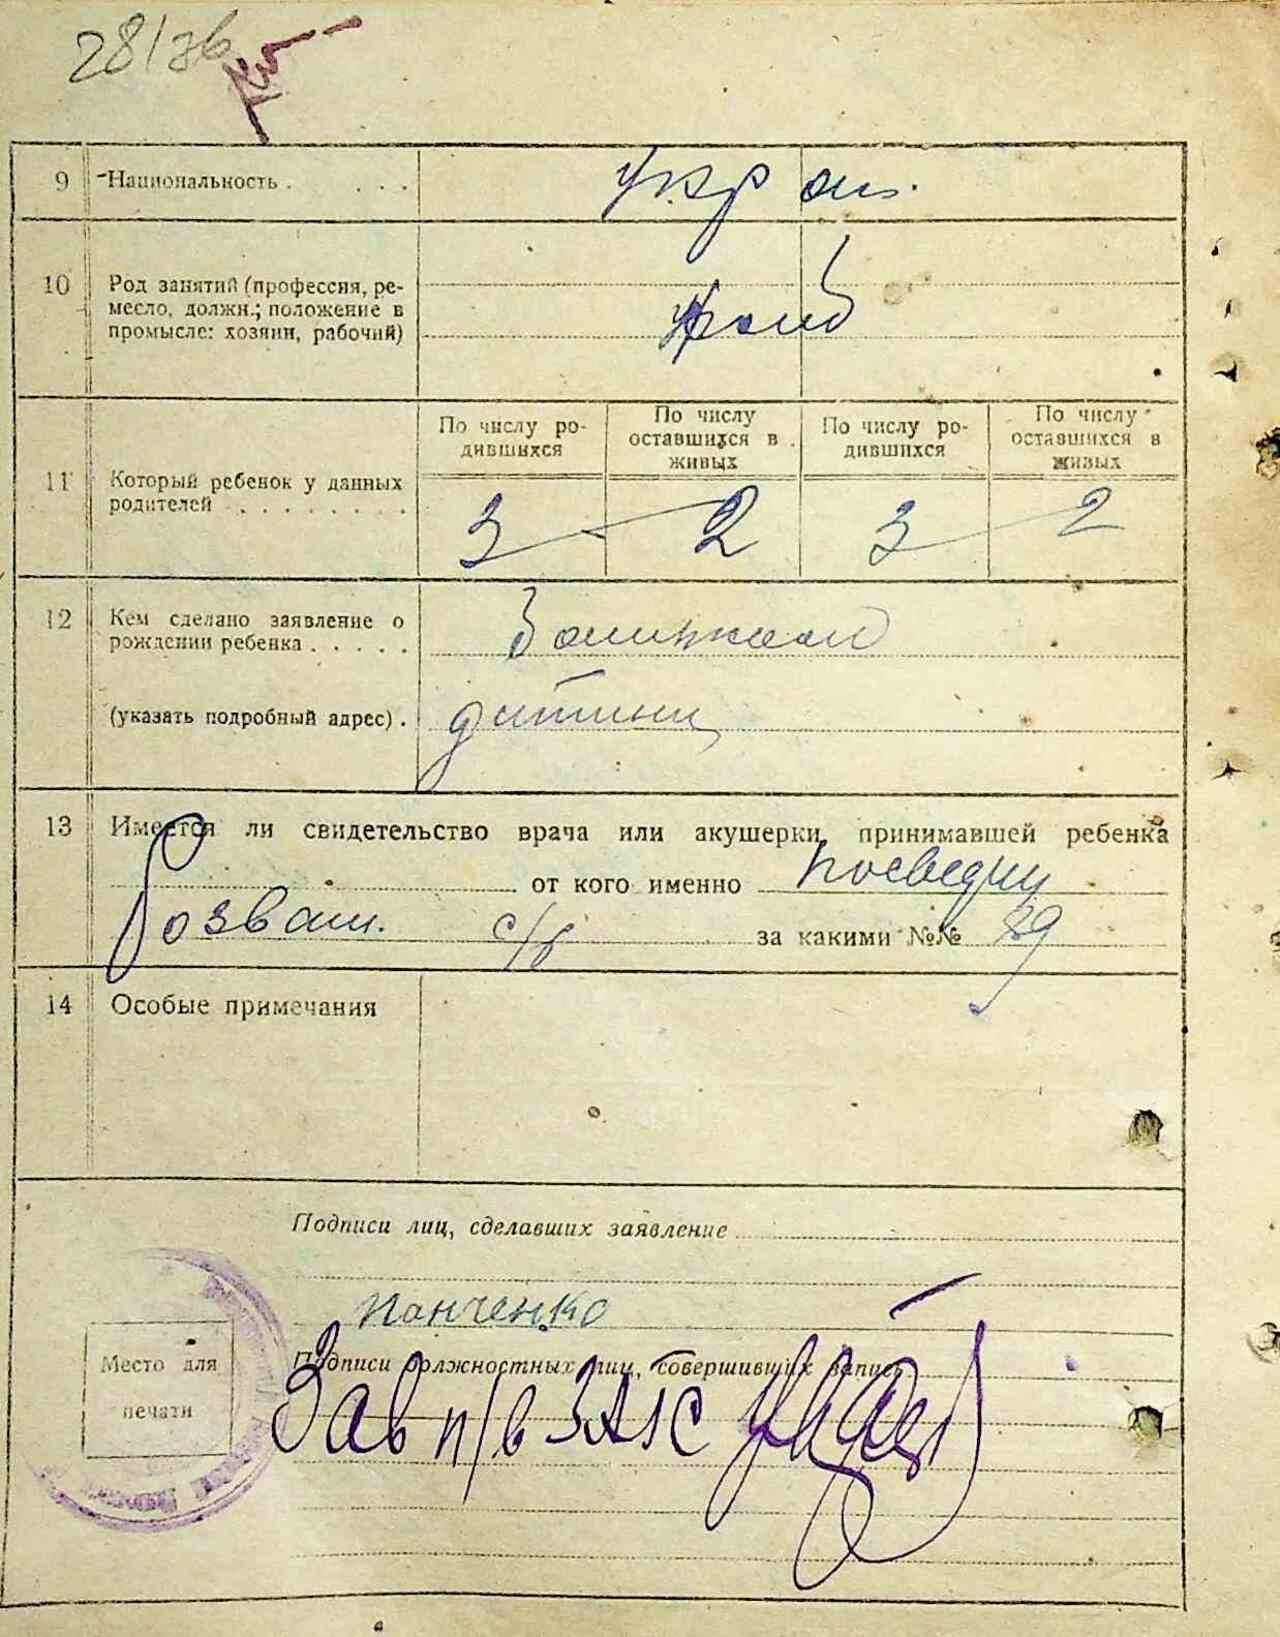 28/зв
9 Национальность . . . .
Укр аин.
10 Род занятий (профессия, ре-
месло, должн.; положение в
промысле: хозяин, рабочий)
11 Который ребенок у данных
родителей . . . . . . . . .
По числу ро-
дившихся
По числу
оставшихся в
живых
По числу ро-
дившихся
По числу
оставшихся в
живых
3 2 3 2
12 Кем сделано заявление о
рождении ребенка . . . . .
(указать подробный адрес) .
дитини
13 Имеется ли свидетельство врача или акушерки, принимавшей ребенка
от кого именно
Розваж. с/р за какими №№ 39
14 Особые примечания
Подписи лиц, сделавших заявление
Панченко
Место для
печати
Подписи должностных лиц, совершивших запись
Зав п/в ЗАГС